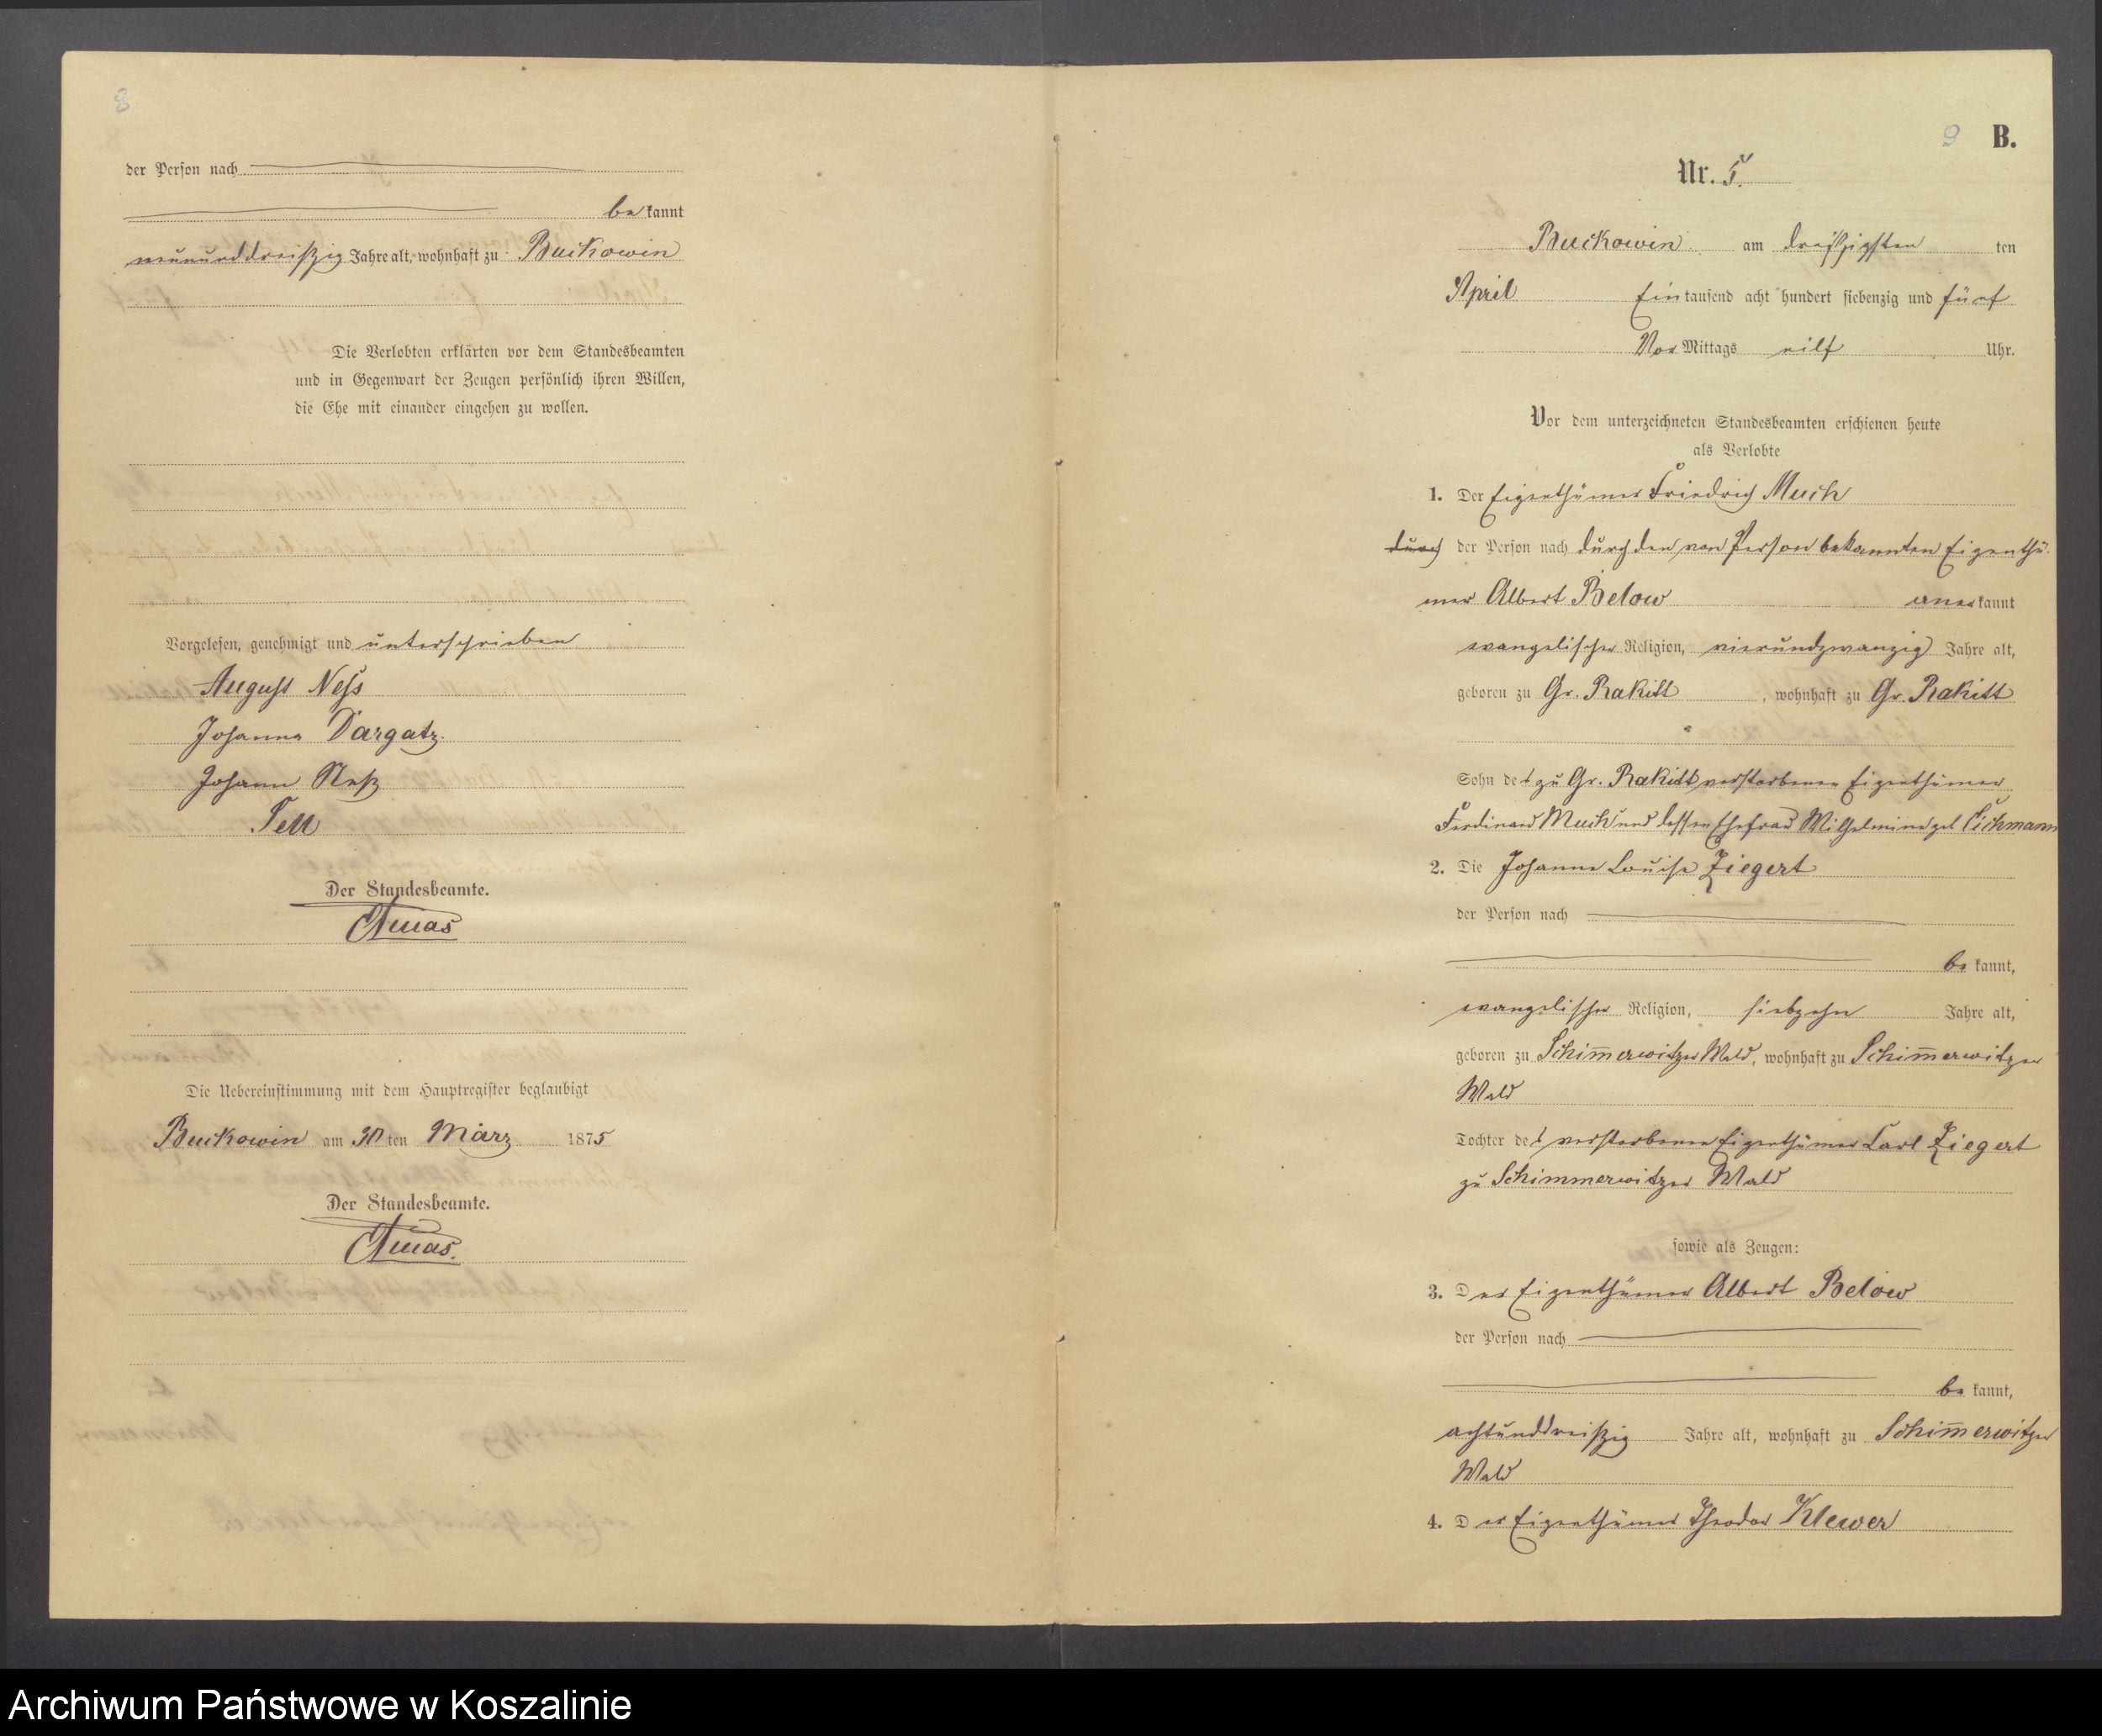 8
der Person nach
bekannt
neununddreißig Jahre alt, wohnhaft zu Buckowin
Die Verlobten erklärten vor dem Standesbeamten
und in Gegenwart der Zeugen persönlich ihren Willen,
die Ehe mit einander eingehen zu wollen.
Vorgelesen, genehmigt und unterschrieben
August Ness
Johanna Dargatz.
Johann Neß
Tell
Der Standesbeamte.
Die Uebereinstimmung mit dem Hauptregister beglaubigt
Buckowin am 30 ten März 1875
Der Standesbeamte.
9 B.
Nr. 5.
Buckowin am dreißzigsten ten
April Ein tausend acht hundert siebenzig und fünf
Vor Mittags eilf Uhr.
Vor dem unterzeichneten Standesbeamten erschienen heute
als Verlobte
1. Der Eigenthümer Friedrich Much
durch der Person nach durch den von Person bekannten Eigenthü-
mer Albert Below anerkannt
evangelischer Religion, vierundzwanzig Jahre alt,
geboren zu Gr. Rakitt, wohnhaft zu Gr. Rakitt
Sohn des zu Gr. Rakitt verstorbenen Eigenthümer
Ferdinand Much und dessen Ehefrau Wilhelmine geb
2. Die Johanne Louise Ziegert
der Person nach
bekannt,
evangelischer Religion, siebzehn Jahre alt,
geboren zu Schim̅erwitzer Wald, wohnhaft zu Schim̅erwitzer
Wald
Tochter des verstorbenen Eigenthümer Carl Ziegert
zu Schimmerwitzer Wald
sowie als Zeugen:
3. Der Eigenthümer Albert Below
der Person nach
bekannt,
achtunddreißig Jahre alt, wohnhaft zu Schim̅erwitzer
Wald
4. Der Eigenthümer Theodor Klewer
Archiwum Państwowe w Koszalinie